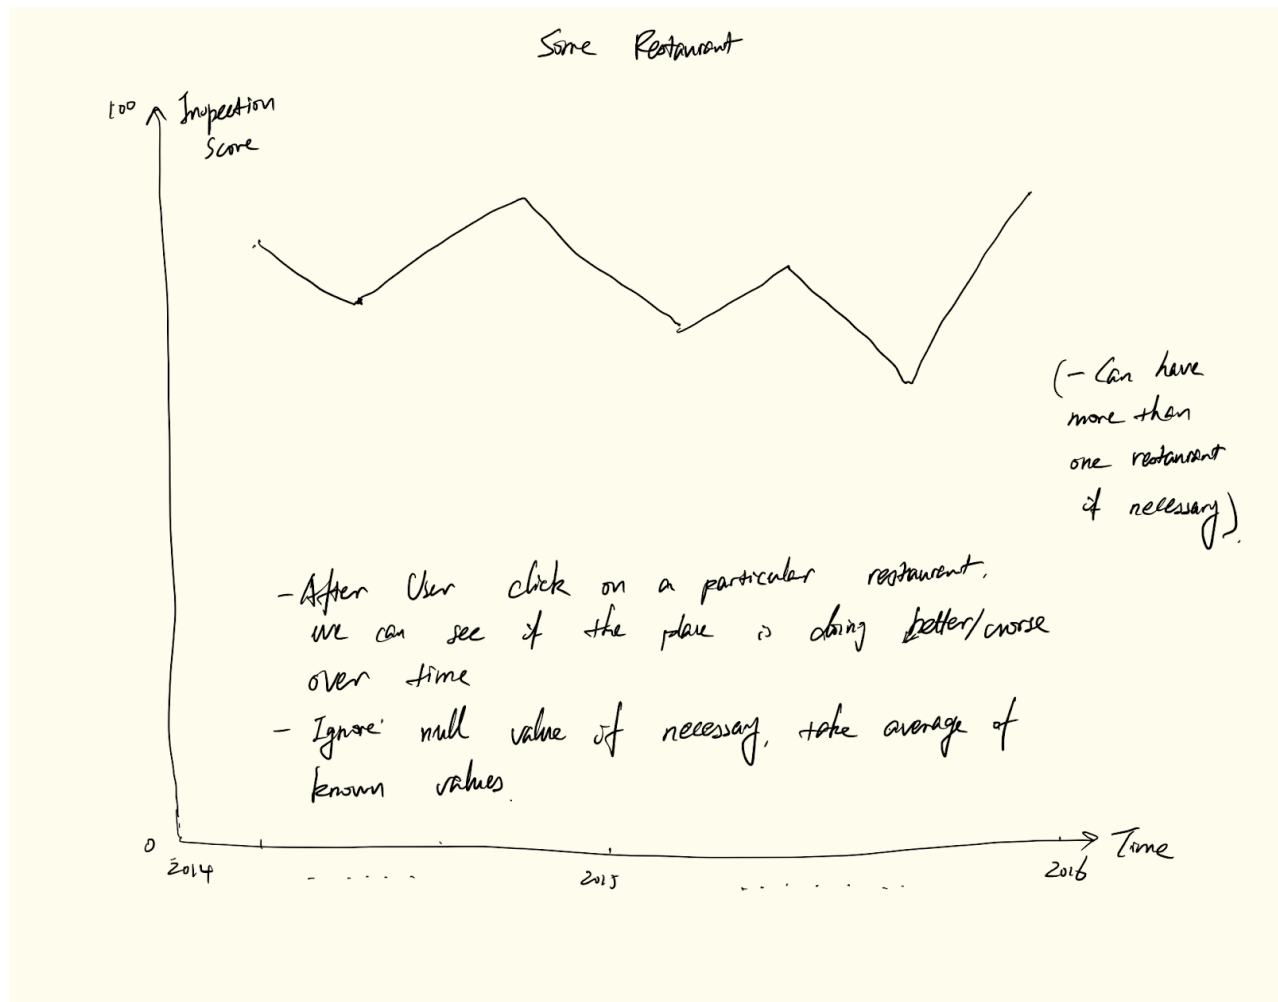 Some Restaurant
100
Inspection
Score
(- Can have
more than
one restaurant
if necessary).
- After User click on a particular restaurant,
we can see if the place is doing better/worse
over time
- Ignore null value if necessary, take average of
known values.
0
Time
2014
2015
2016